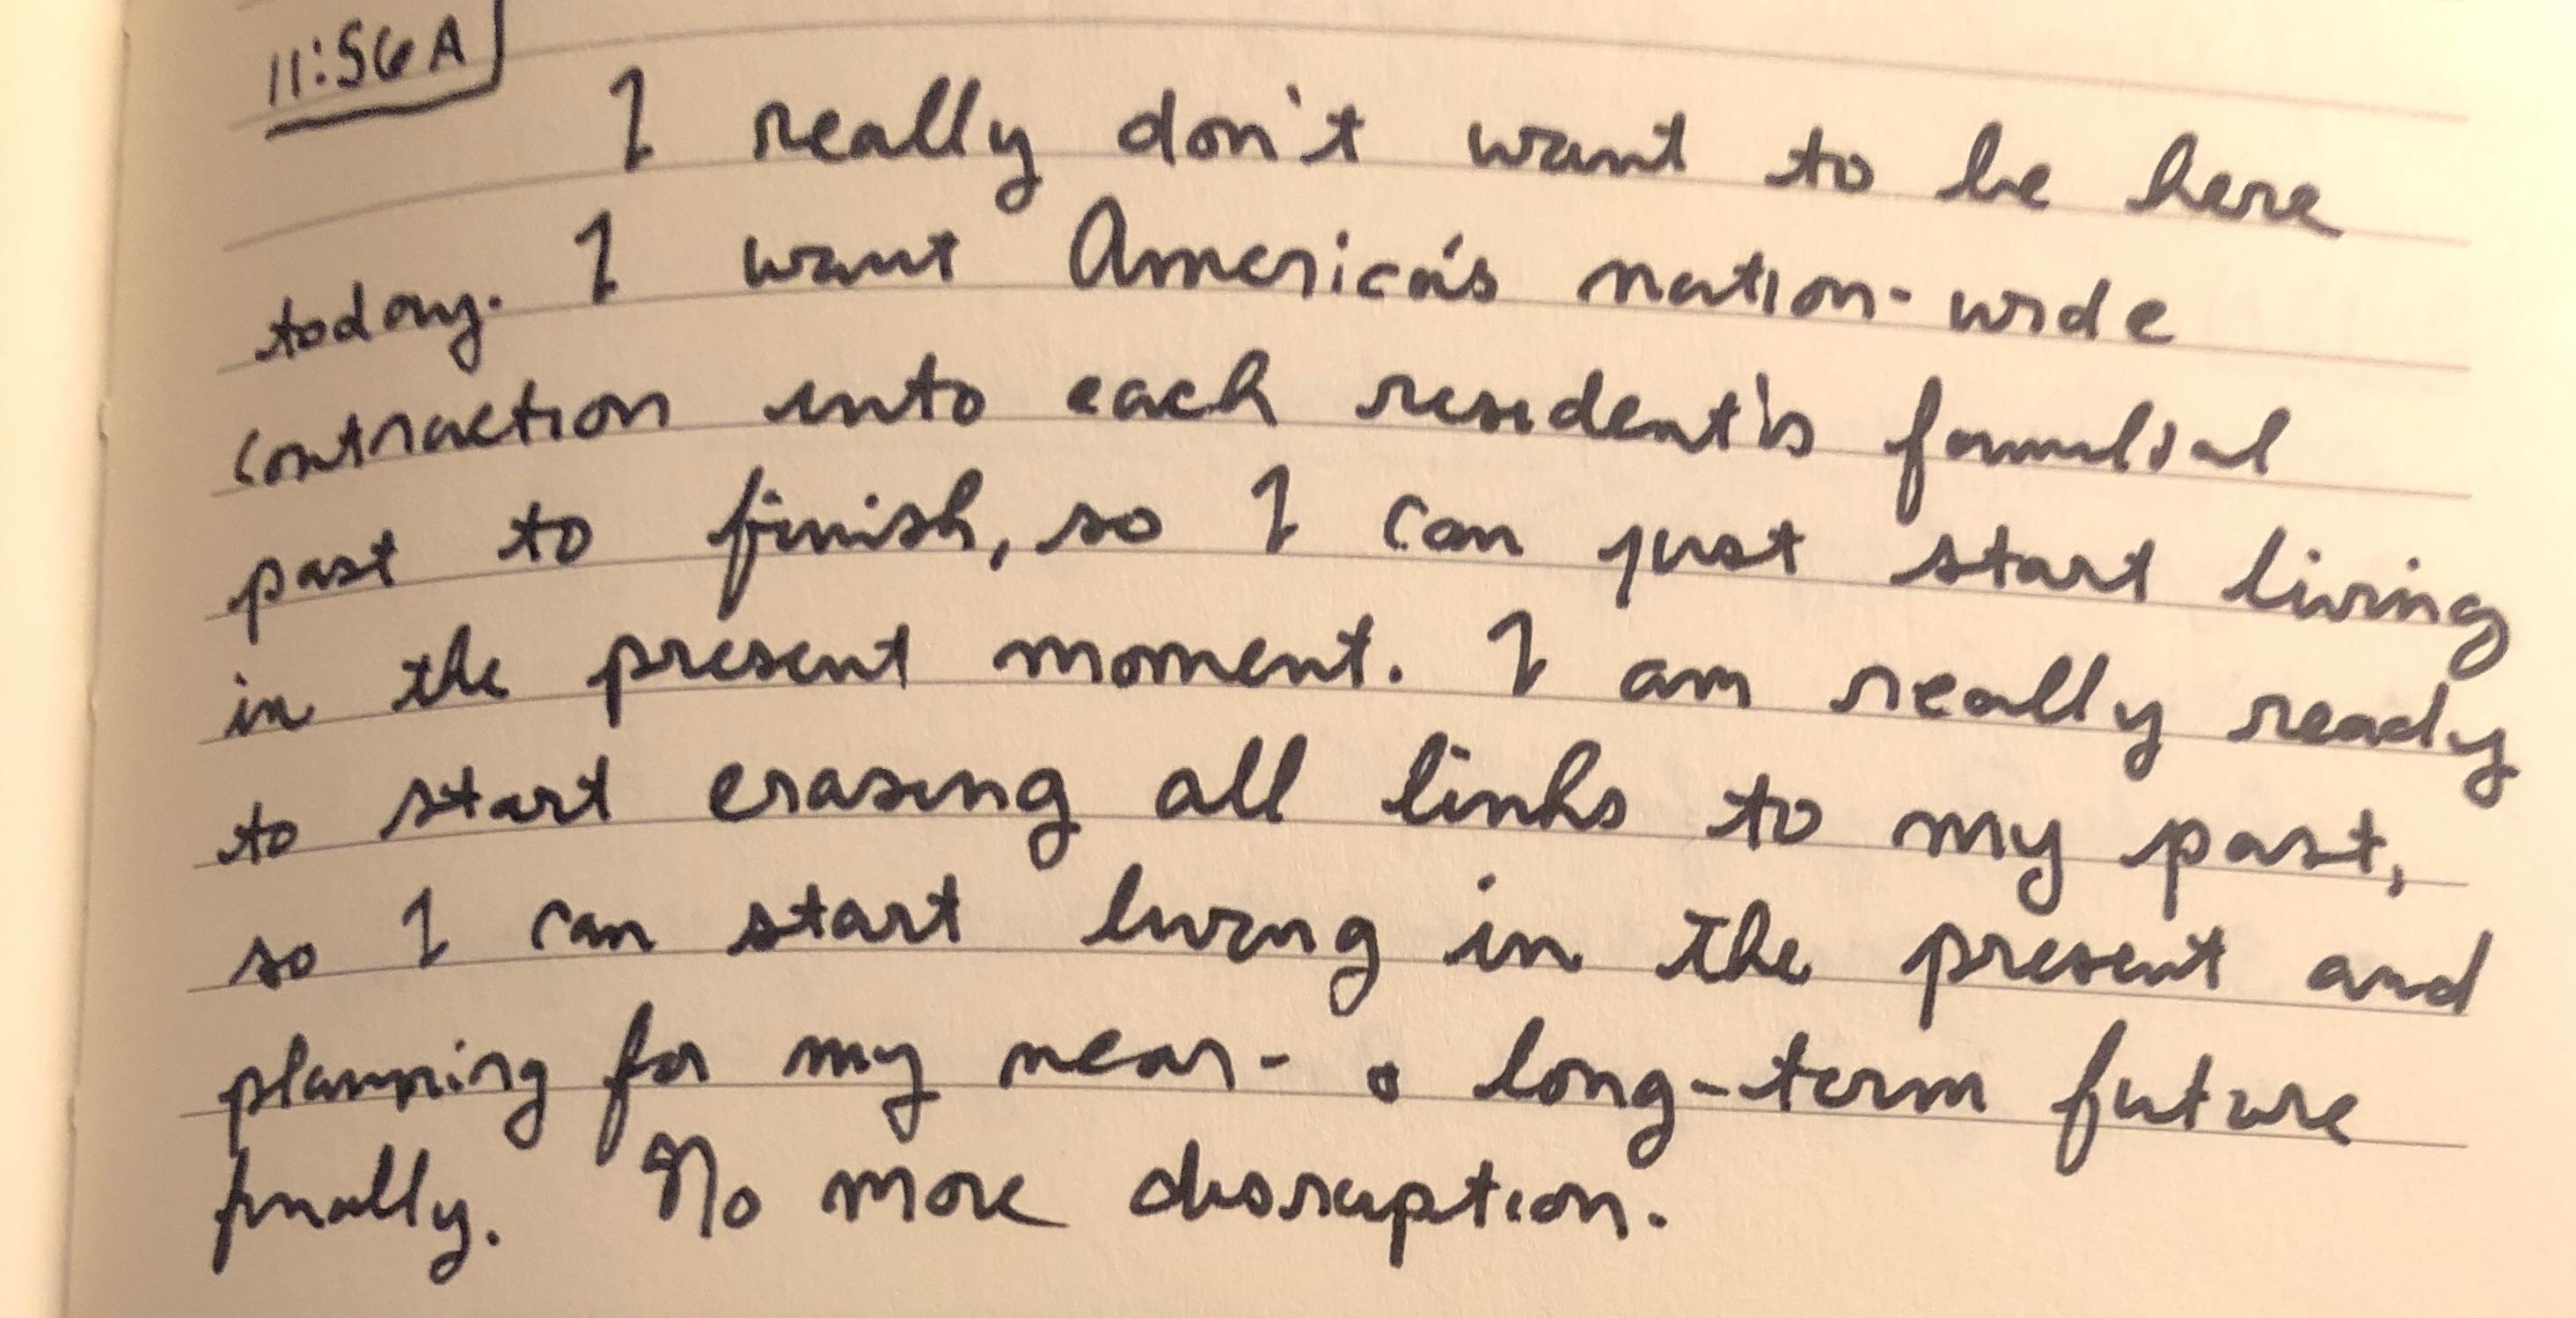 11:56A
I really don't want to be here
today. I want America's nation-wide
contraction into each resident's familial
past to finish, so I can just start living
in the present moment. I am really ready
to start erasing all links to my past,
so I can start living in the present and
planning for my near- & long-term future
finally. No more disruption.